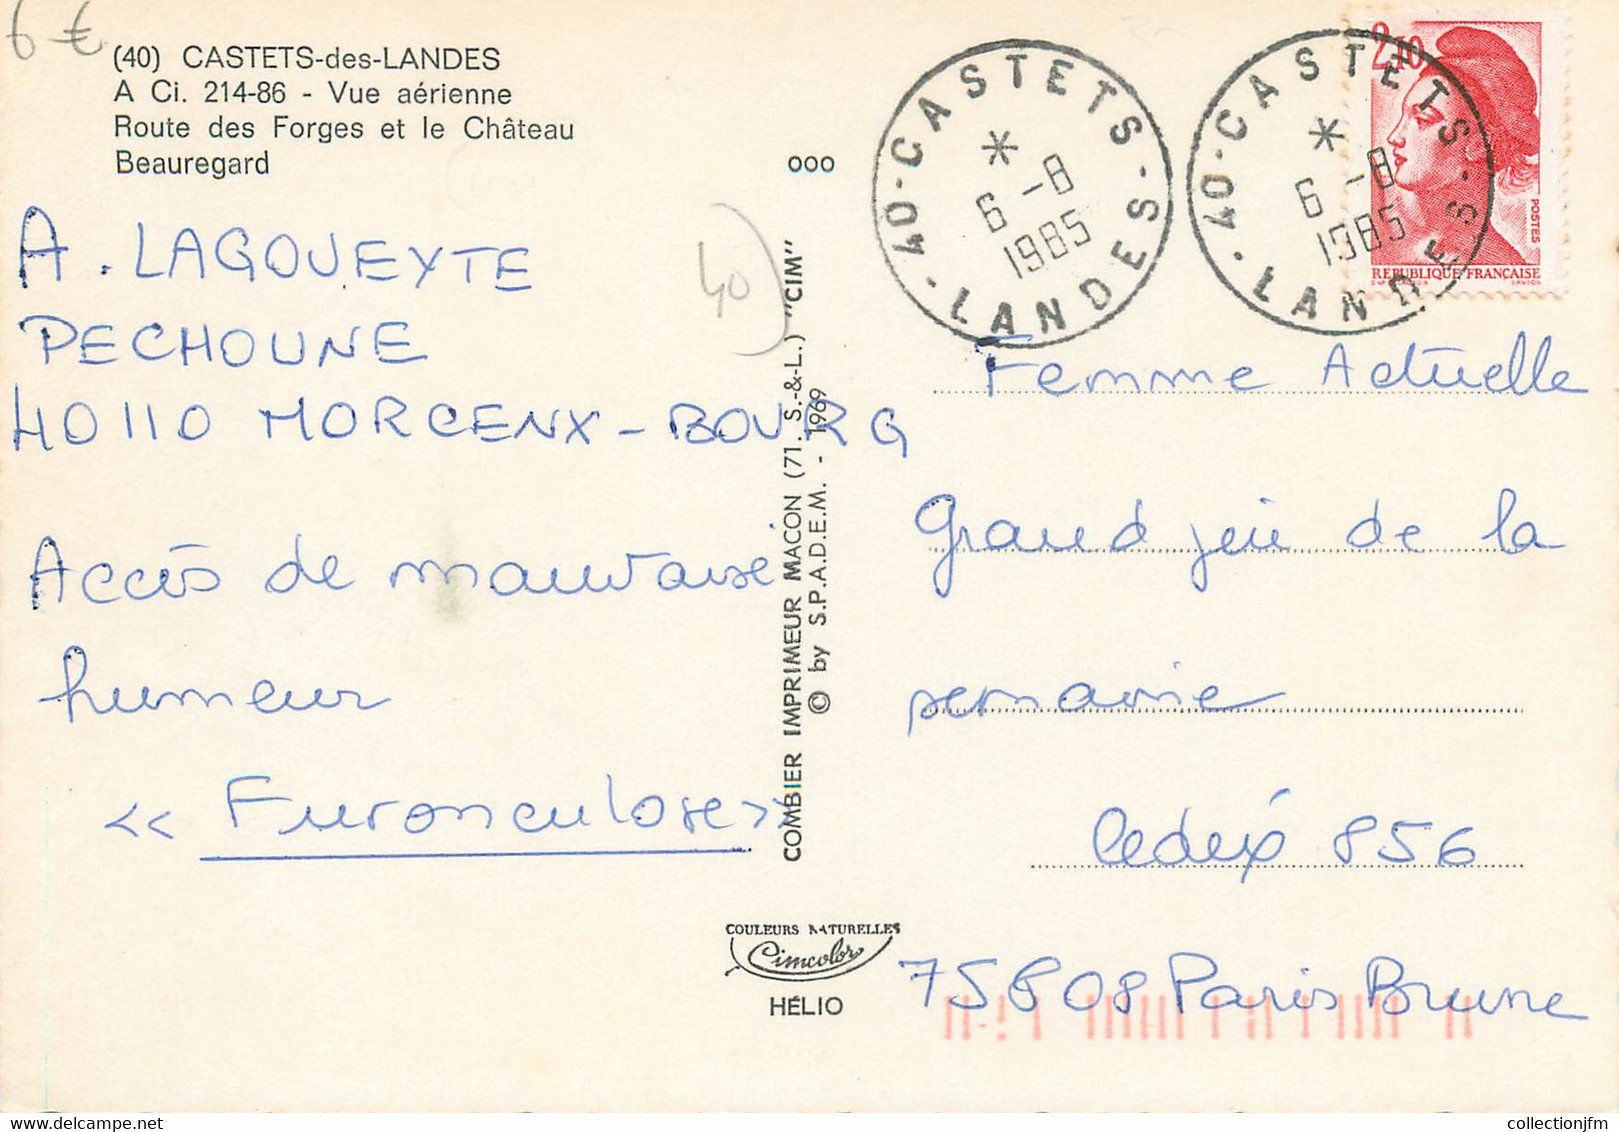 6 €
(40) CASTETS-des-LANDES
A Ci. 214-86 - Vue aérienne
Route des Forges et le Château
Beauregard
A. LAGOUEYTE
PECHOUNE
40110 MORCENX-BOURG
Accès de mauvaise
humeur
<< Furonculose >>
40)
ooo
COMBIER IMPRIMEUR MACON (71. S.-&-L.) "CIM"
© by S.P.A.D.E.M. - 1969
COULEURS NATURELLES
Cimcolor
HÉLIO
40-CASTETS-
6 -8
1985
LANDES
40-CASTETS-
6 -8
1985
LANDES
2,10
POSTES
REPUBLIQUE FRANÇAISE
Femme Actuelle
Grand jeu de la
semaine
Cedex 856
75808 Paris Brune
collectionjfm